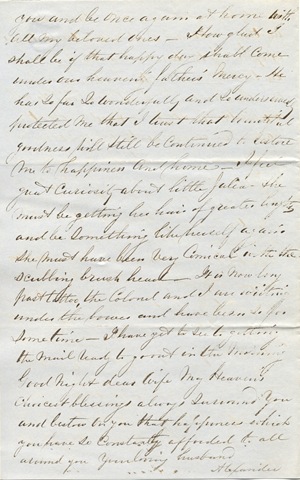 you and be once again at home with
all my beloved ones — How glad I
shall be if that happy day shall come
under our heavenly Father's Mercy. He
has so far so wonderfully and so
protected me that I trust that bountiful
goodness will still be continued to restore
me to happiness and home — I feel
great curiosity about little Julia. She
must be getting her hair of greater length
and be something like herself again
She must have been very comical in the
scrubbing brush head — It is now long
past the Colonel and I are writing
under the and have been so for
sometime — I have yet to see to getting
the mail ready to go out in the morning
Good night dear wife May Heaven's
choicest blessings always surround you
and bestow on you that happiness which
you have so constantly afforded to all
around you Your loving husband
Alexander